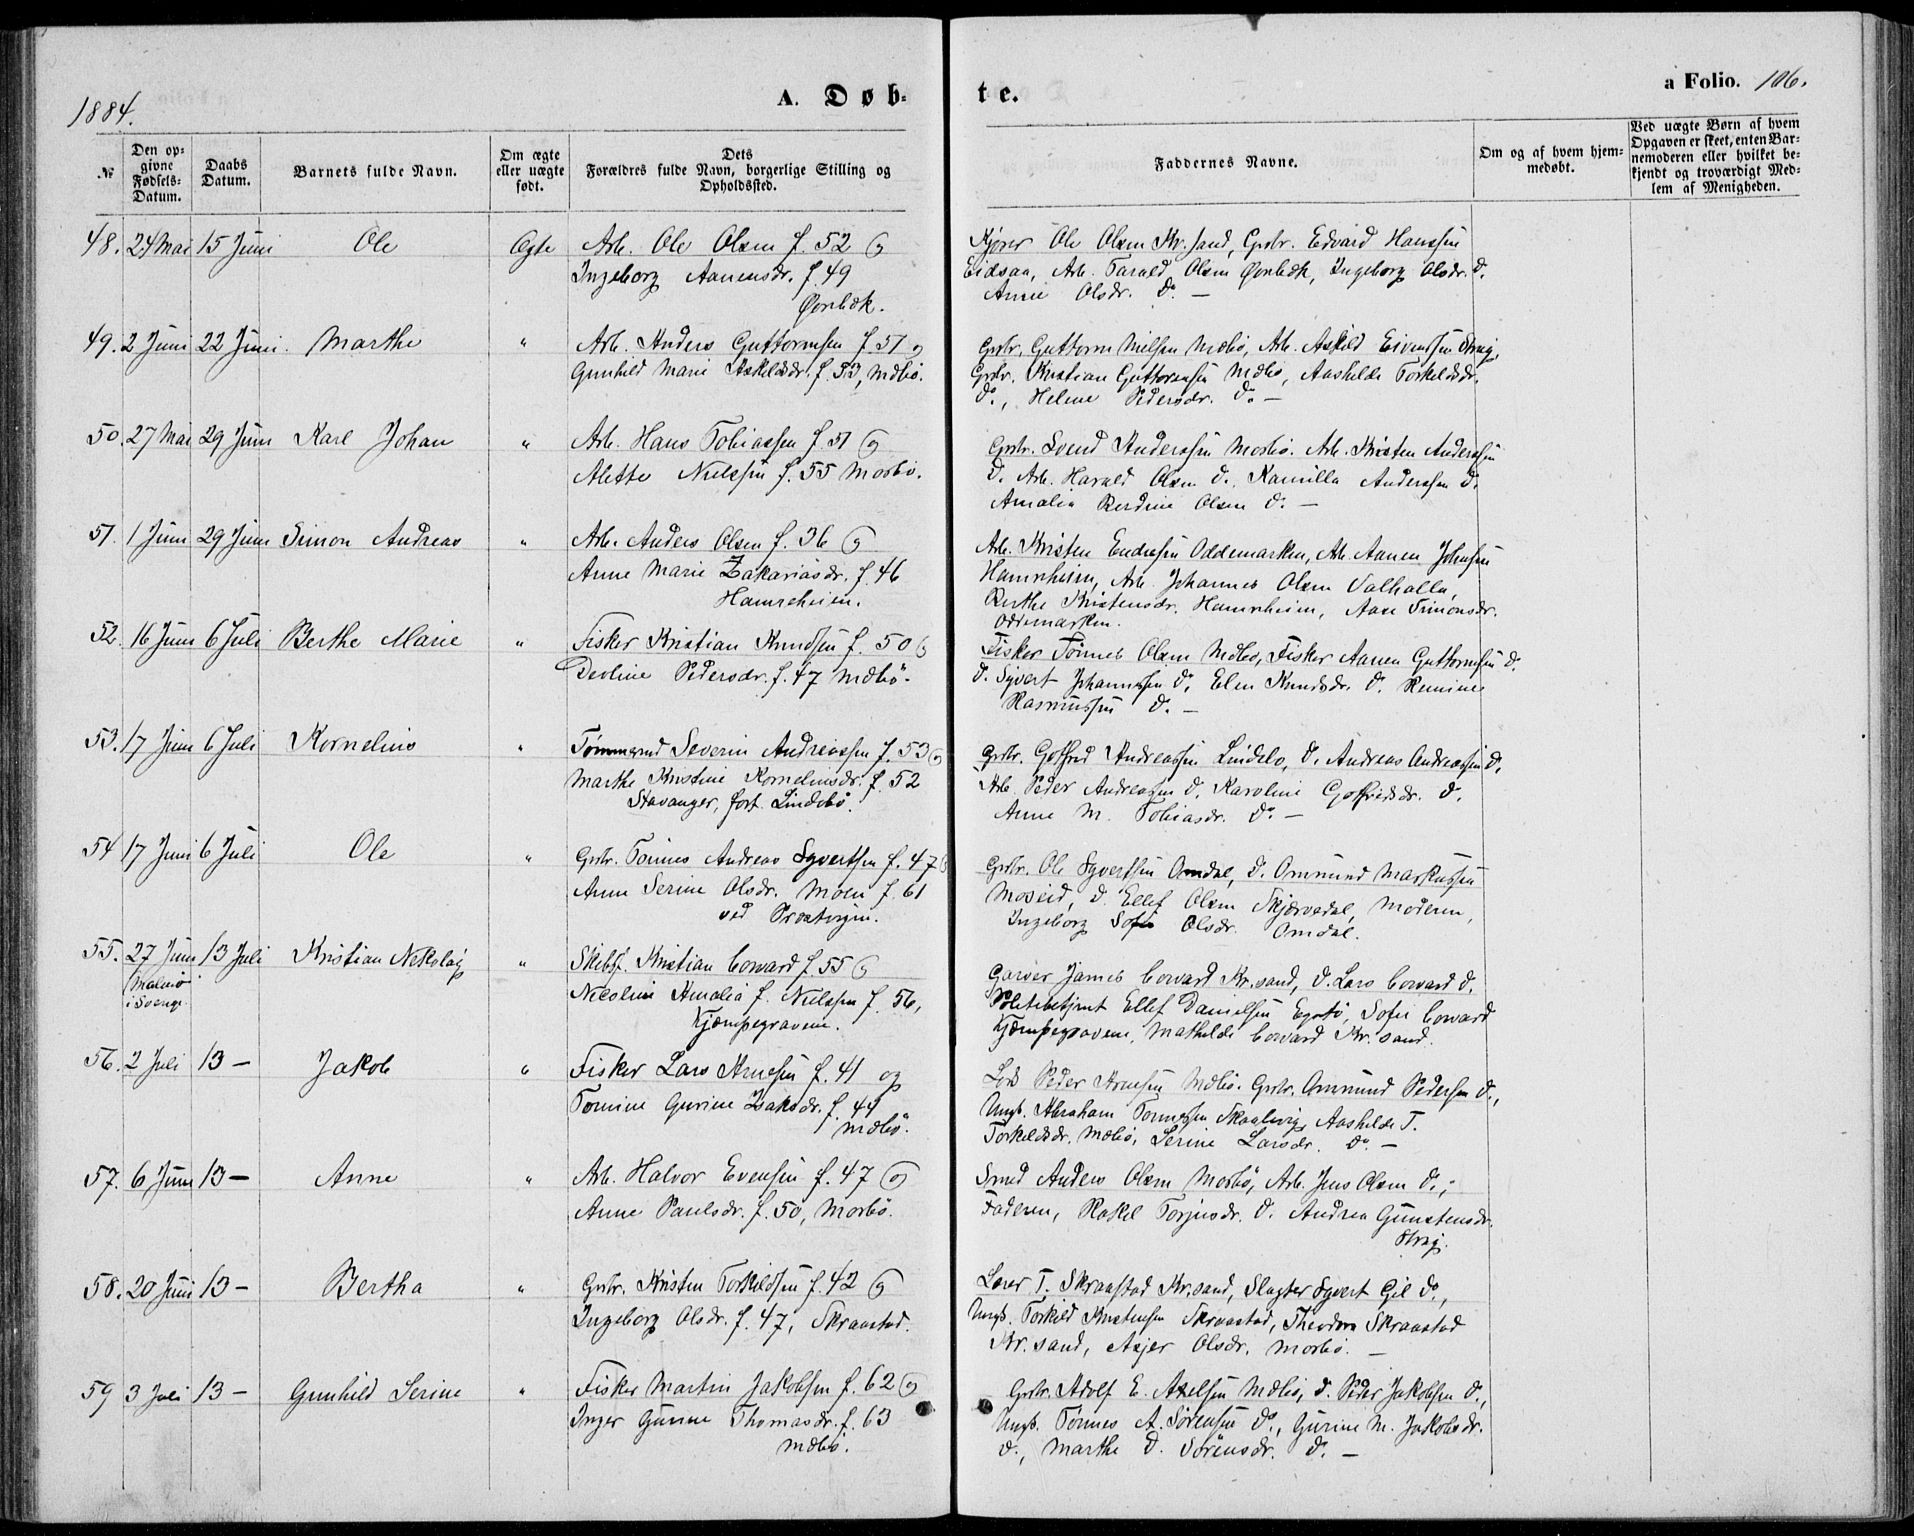 1884.
A. Døb-
te.
a Folio. 106.
№
Den op-
givne
Fødsels-
Datum.
Daabs
Datum.
Barnets fulde Navn.
Om ægte
eller uægte
født.
Dets
Forældres fulde Navn, borgerlige Stilling og
Opholdssted.
Faddernes Navne.
Om og af hvem hjem-
medøbt.
Ved uægte Børn af hvem
Opgaven er skeet, enten Bar-
nemoderen eller hvilket be-
kjendt og troværdigt Med-
lem af Menigheden.
48. 24 Mai 15 Juni Ole Ægte Arb. Ole Olsen f. 52 og
Ingeborg Aanensdr. f. 49
Øvrebæk.
Ole Olsen Kr.sand, Grbr. Edvard Hanssen
Eidsaa, Arb. Tarald Olsen Øvrebæk, Ingeborg Olsdr. do.
Anne Olsdr. do. —
49. 2 Juni 22 Juni. Marthe " Arb. Anders Guttormsen f. 51 og
Gunhild Marie Askildsdr. f. 53, Mæbø.
Grbr. Guttorm Nilsen Mæbø, Arb. Askild Eivindsen Strai,
Grbr. Kristian Guttormsen Mæbø, Aashilde Torkildsdr.
do., Helene Pedersdr. do. —
50. 27 Mai 29 Juni Karl Johan " Arb. Hans Tobiassen f. 51 og
Alette Nielsen f. 55 Mosbø.
Grbr. Svend Anderssen Mosbø. Arb. Kristen Anderssen
do. Arb. Harald Olsen do. Kamilla Andersen do.
Amalia Berdine Olsen do. —
51. 1 Juni 29 Juni Simon Andreas " Arb. Anders Olsen f. 36 og
Anne Marie Zakariasdr. f. 46
Hamreheien.
Arb. Kristen Endresen Oddemarken, Arb. Aanen Johnsen
Hamreheien, Arb. Johannes Olsen Valhalla,
Berthe Kristensdr. Hamreheien, Aase Simonsdr.
Oddemarken.
52. 16 Juni 6 Juli Berthe Marie " Fisker Kristian Knudsen f. 50 og
Devline Pedersdr. f. 47 Mæbø.
Fisker Tønnes Olsen Mæbø, Fisker Aanen Guttormsen do.
do. Syvert Johannessen do. Elen Knudsdr. do.
Rasmussen do. —
53. 17 Juni 6 Juli Kornelius " Tømmermd Severin Andreassen f. 53 og
Marthe Kristine Korneliusdr. f. 52
Stavanger, fort. Lindebø.
Grbr. Gotfred Andreassen Lindebø, do. Andreas Andreassen do.
Arb. Peder Andreassen do. Karoline Gotfredsdr. do.
Anne M. Tobiasdr. do. —
54 17 Juni 6 Juli Ole " Grbr. Tønnes Andreas Syvertsen f. 47 og
Anne Serine Olsdr. Moen f. 61
ved
Grbr. Ole Syvertsen Omdal, do. Ommund Markussen
Moseid, do. Ellef Olsen Skjærvedal, Moderen,
Ingeborg Sofie Olsdr. Omdal.
55. 27 Juni 13 Juli Kristian Nikolai " Skibsf. Kristian Coward f. 55 og
Malmø
i Sverige
Nicoline Amalia f. Nielsen f. 56,
Kjempegraven.
Garver James Coward Kr.sand, do. Lars Coward do.
Politibetjent Ellef Danielsen Egstø, Sofie Coward
Kjempegraven, Mathilde Coward Kr.sand.
56. 2 Juli 13 — Jakob " Fisker Lars Arnesen f. 41 og
Tomine Gurine Isaksdr. f. 44
Mæbø.
Lods Peder Arnesen Mæbø. Grbr. Ommund Pedersen do.,
Ungk. Abraham Tønnessen Skaalevig, Aashilde T.
Torkildsdr. Mæbø, Serine Larsdr. do. —
57. 6 Juni 13 — Anne " Arb. Halvor Evensen f. 47 og
Anne Paulsdr. f. 50, Mosbø.
Smed Anders Olsen Mosbø, Arb. Jens Olsen do.,
Faderen, Rakel Torjusdr. do. Andrea Gunstensdr.
Strai.
58. 20 Juni 13 — Bertha " Grbr. Kristen Torkildsen f. 42 og
Ingeborg Olsdr. f. 47, Skraastad.
T. Skraastad Kr.sand, Slagter Syvert Gil do.,
Ungk. Torkild Kristensen Skraastad, Theodora Skraastad
Kr.sand, Asjer Olsdr. Mosbø. —
59 3 Juli 13 — Gunhild Serine " Fisker Martin Jakobsen f. 62 og
Inger Gurine Thomasdr. f. 63
Mæbø.
Grbr. Adolf E. Axelsen Mæbø, do. Peder Jakobsen do.,
Ungk. Tønnes A. Sørensen do., Gurine M. Jakobsdr.
do., Marthe D. Sørensdr. do. —